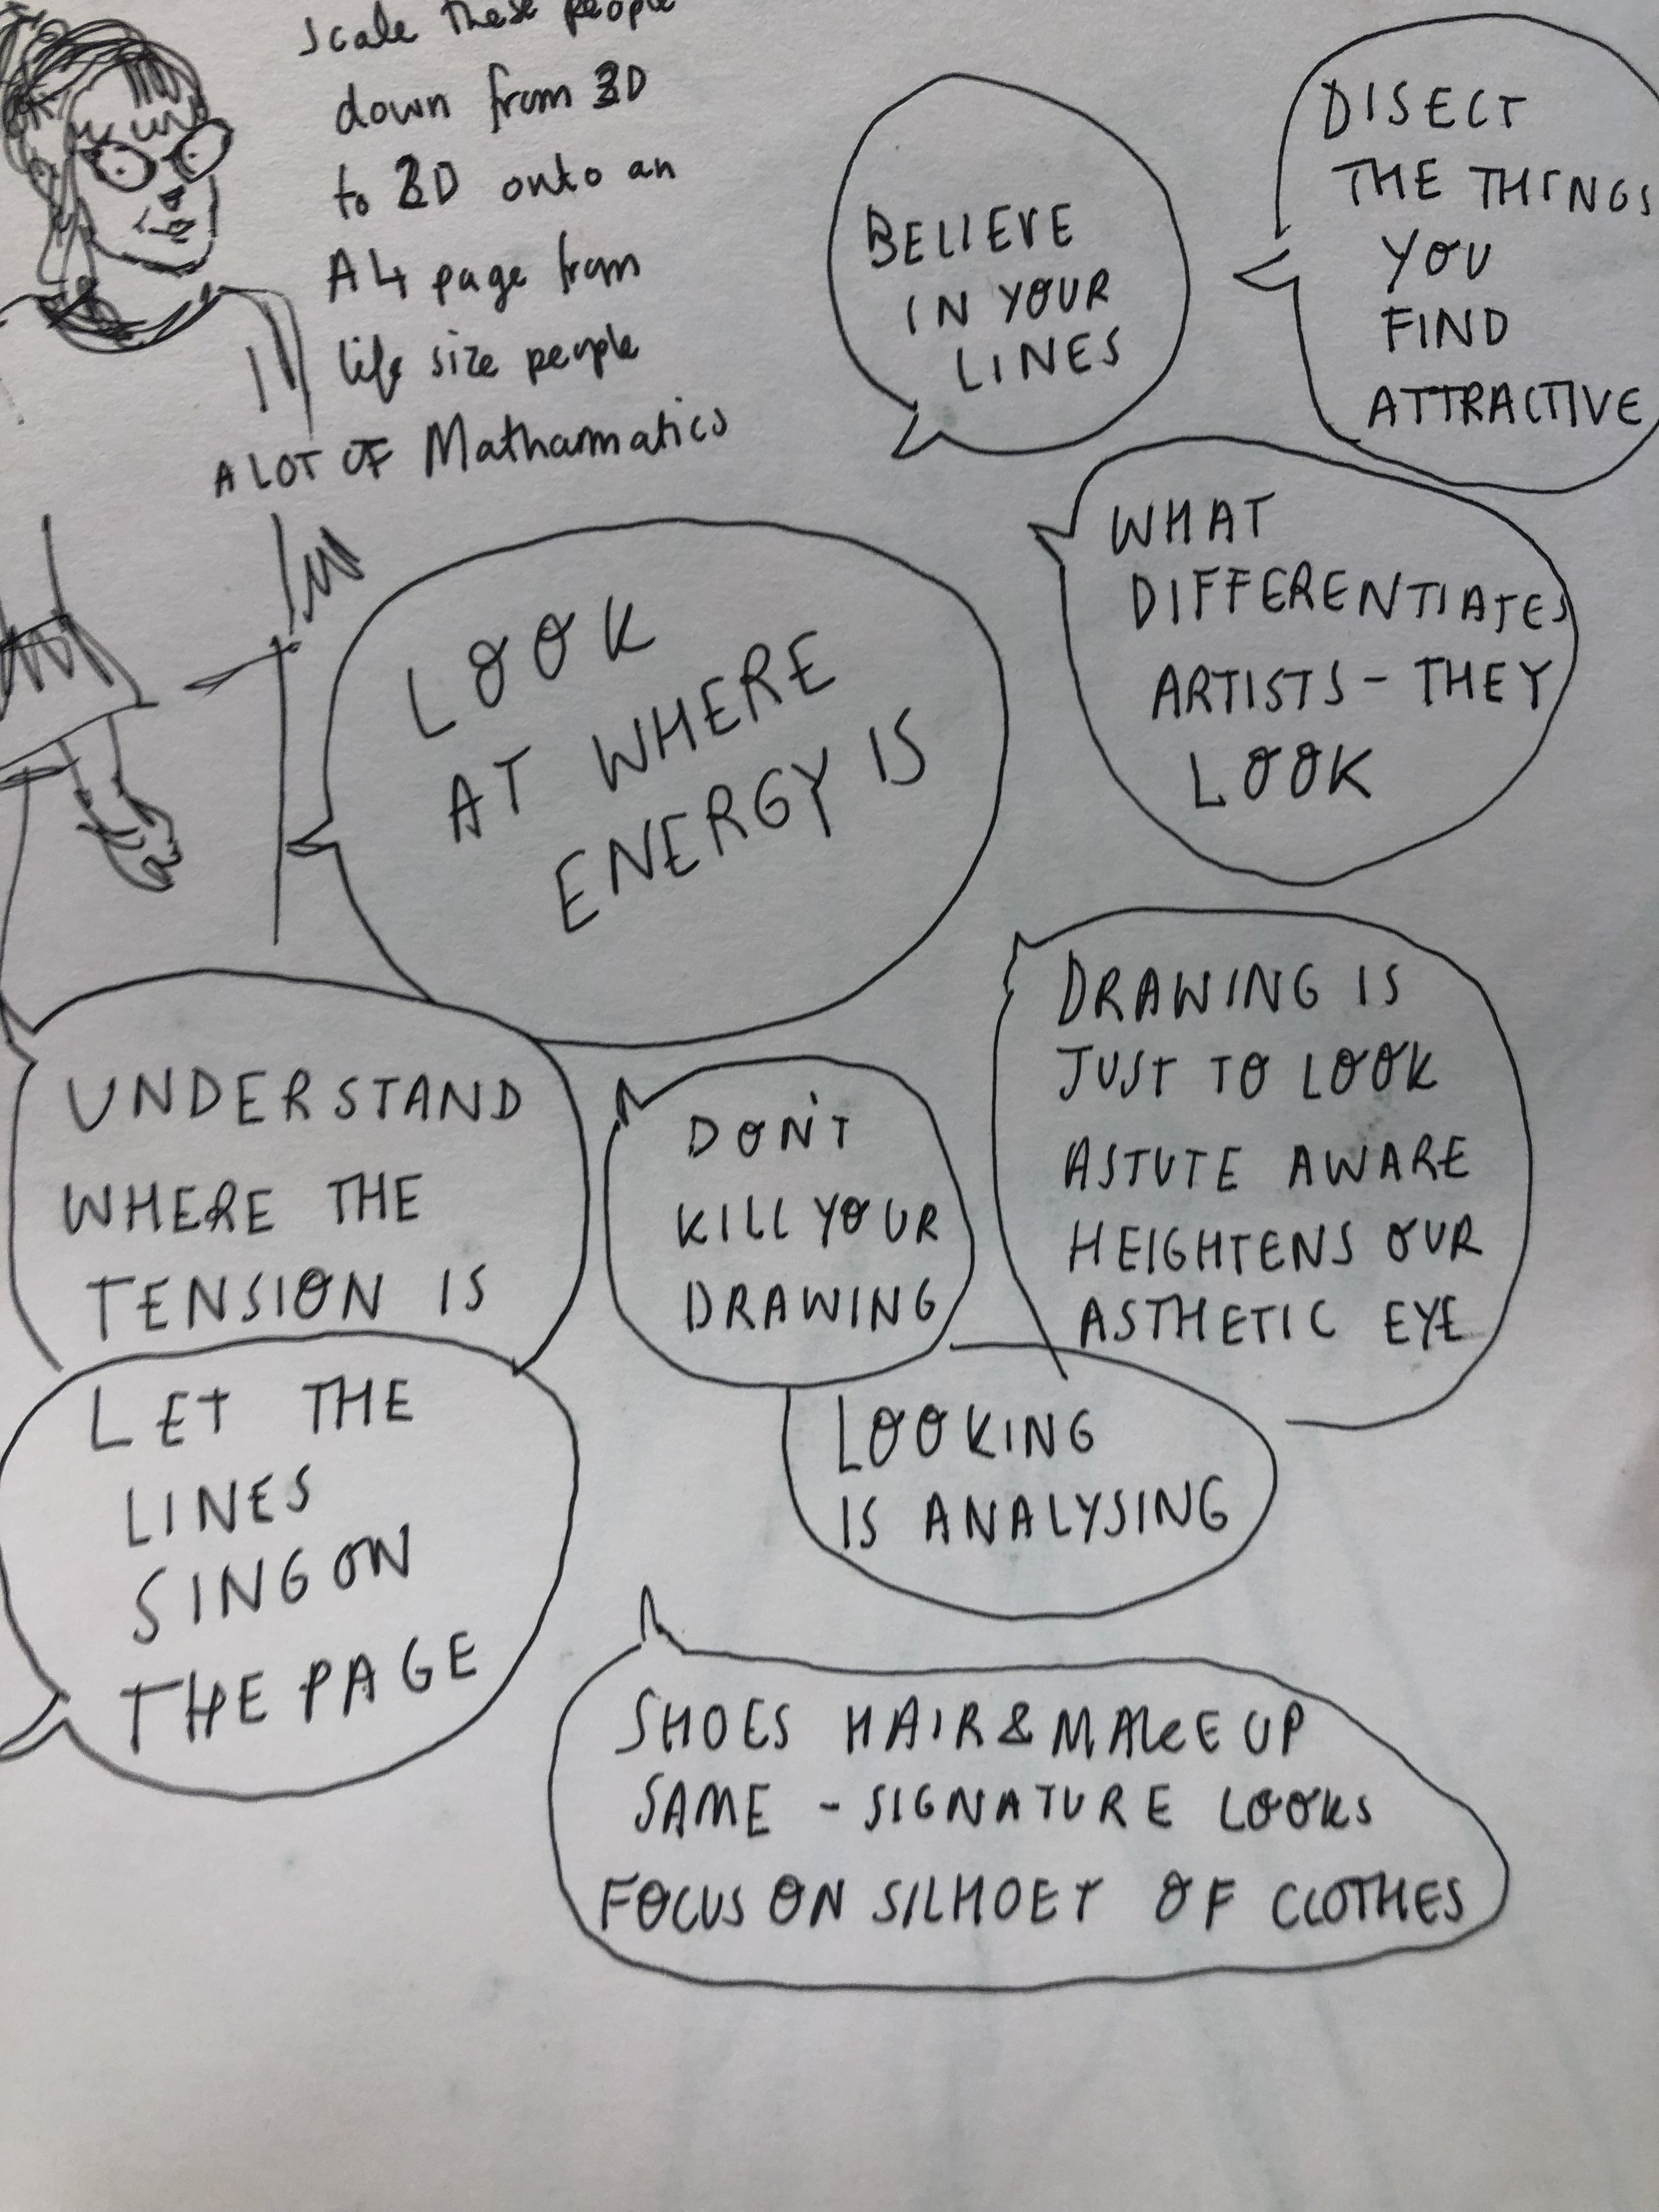 Scale these people
down from 3D
to 2D onto an
A4 page from
life size people
A LOT OF Mathamatics
BELIEVE
IN YOUR
LINES
DISECT
THE THINGS
YOU
FIND
ATTRACTIVE
WHAT
DIFFERENTIATES
ARTISTS - THEY
LOOK
LOOK
AT WHERE
ENERGY IS
DRAWING IS
JUST TO LOOK
ASTUTE AWARE
HEIGHTENS OUR
ASTHETIC EYE
UNDERSTAND
WHERE THE
TENSION IS
DON'T
KILL YOUR
DRAWING
LET THE
LINES
SING ON
THE PAGE
LOOKING
IS ANALYSING
SHOES HAIR & MAKE UP
SAME - SIGNATURE LOOKS
FOCUS ON SILHOET OF CLOTHES